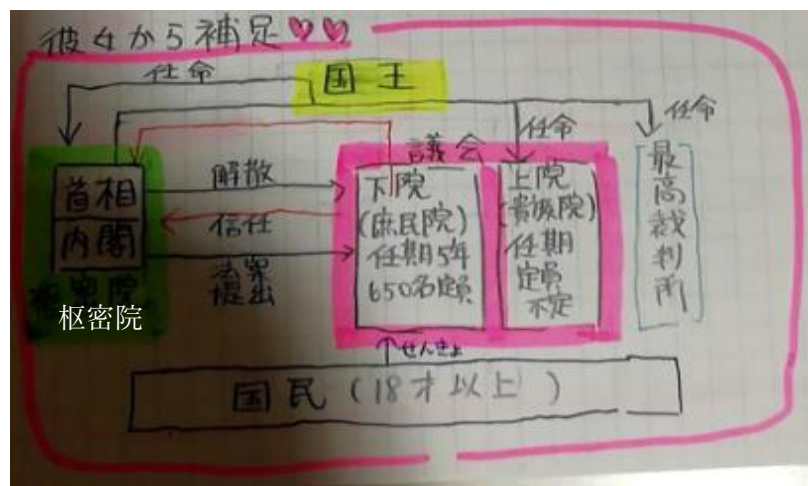 彼女から補足♡♡
国王
任命
任命
任命
議会
首相
内閣
枢密院
枢密院
解散
信任
法案
提出
下院
(庶民院)
任期5年
650名定員
上院
(貴族院)
任期
定員
不定
最高裁判所
↑せんきょ
国民(18才以上)